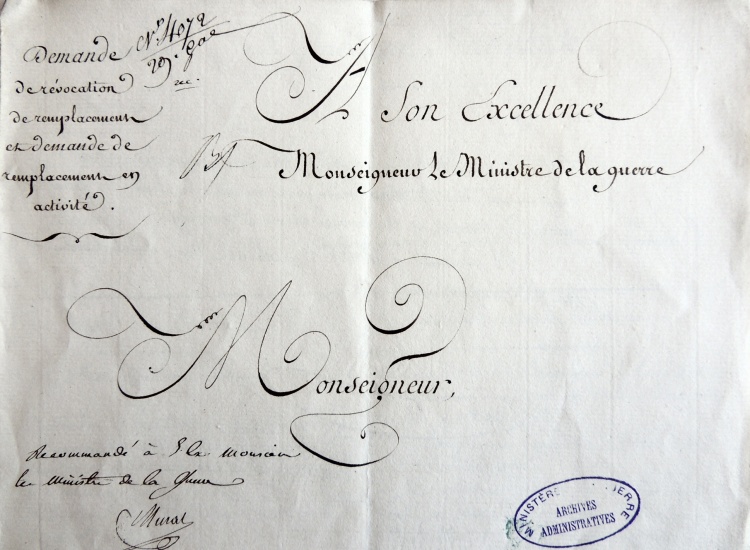 Demande
de révocation
de remplacement
et demande de
remplacement en
activité.
N° 4072
A Son Excellence
Monseigneur Le Ministre de la guerre
Monseigneur,
Recommandé à
le Ministre de la Guerre
Murat
MINISTÈRE GUERRE
ARCHIVES
ADMINISTRATIVES